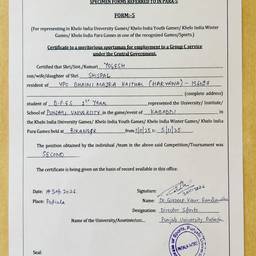 SPECIMEN FORMS REFERRED TO IN PARA 5
FORM-5
(For representing in Khelo India University Games/ Khelo India Youth Games/ Khelo India Winter
Games/ Khelo India Para Games in one of the recognized Games/Sports.)
Certificate to a meritorious sportsman for employment to a Group C service
under the Central Government.
Certified that Shri/Smt./Kumari YOGESH
son/wife/daughter of Shri SHISPAL
resident of VPO BHAINI MAJRA KAITHAL (HARYANA) -
(complete address)
student of B.P.E.S 1st YEAR represented the University/ Institute/
School of PUNJABI UNIVERSITY in the game/event of KABADDI in
the Khelo India University Games/ Khelo India Youth Games/ Khelo India Winter Games/ Khelo India
Para Games held at BIKANER from to 5/12/25
The position obtained by the individual /team in the above said Competition/Tournament was
SECOND
The certificate is being given on the basis of record available in this office
Date: Signature:
Place: Patiala Name:
Designation: Director Sports
Name of the University/Institution: Punjabi University Patiala
Seal: